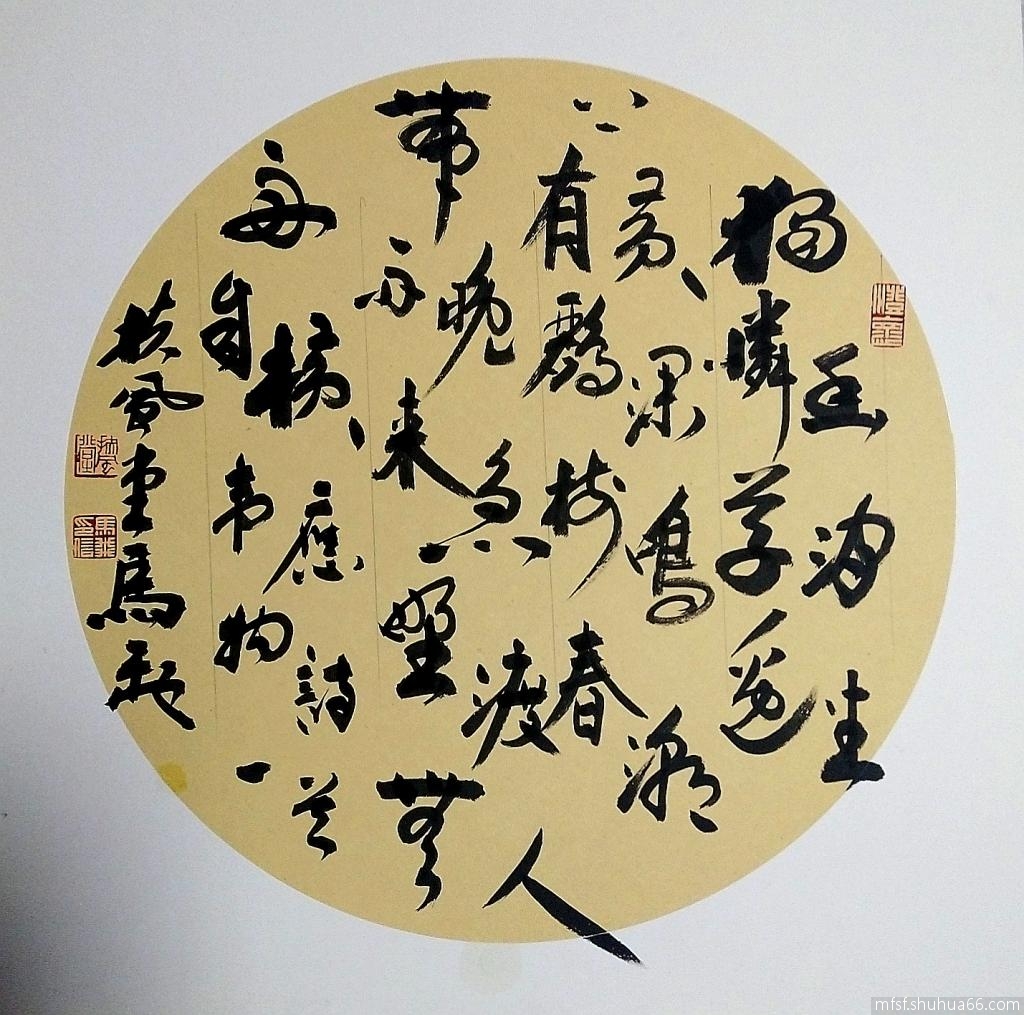 獨憐幽草澗邊生
上有黃鸝深樹鳴春潮
帶雨晚來急野渡無人
舟自橫韋應物詩一首
扶風堂馬
扶風堂
mfsf.shuhua66.com